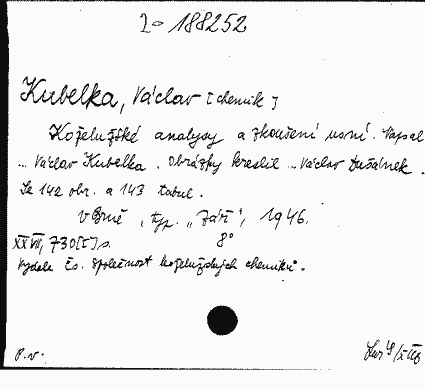 2-188252
Kubelka, Václav [chemik]
Koželužské analysy a zkoušení usní. Napsal
... Václav Kubelka. Obrázky kreslil ... Václav Dušánek.
Se 142 obr. a 143 tabul.
V Brně, typ. "Září", 1946.
XXVII, 730[I] s. 8°
Vydala Čs. společnost koželužských chemiků.
P.v.